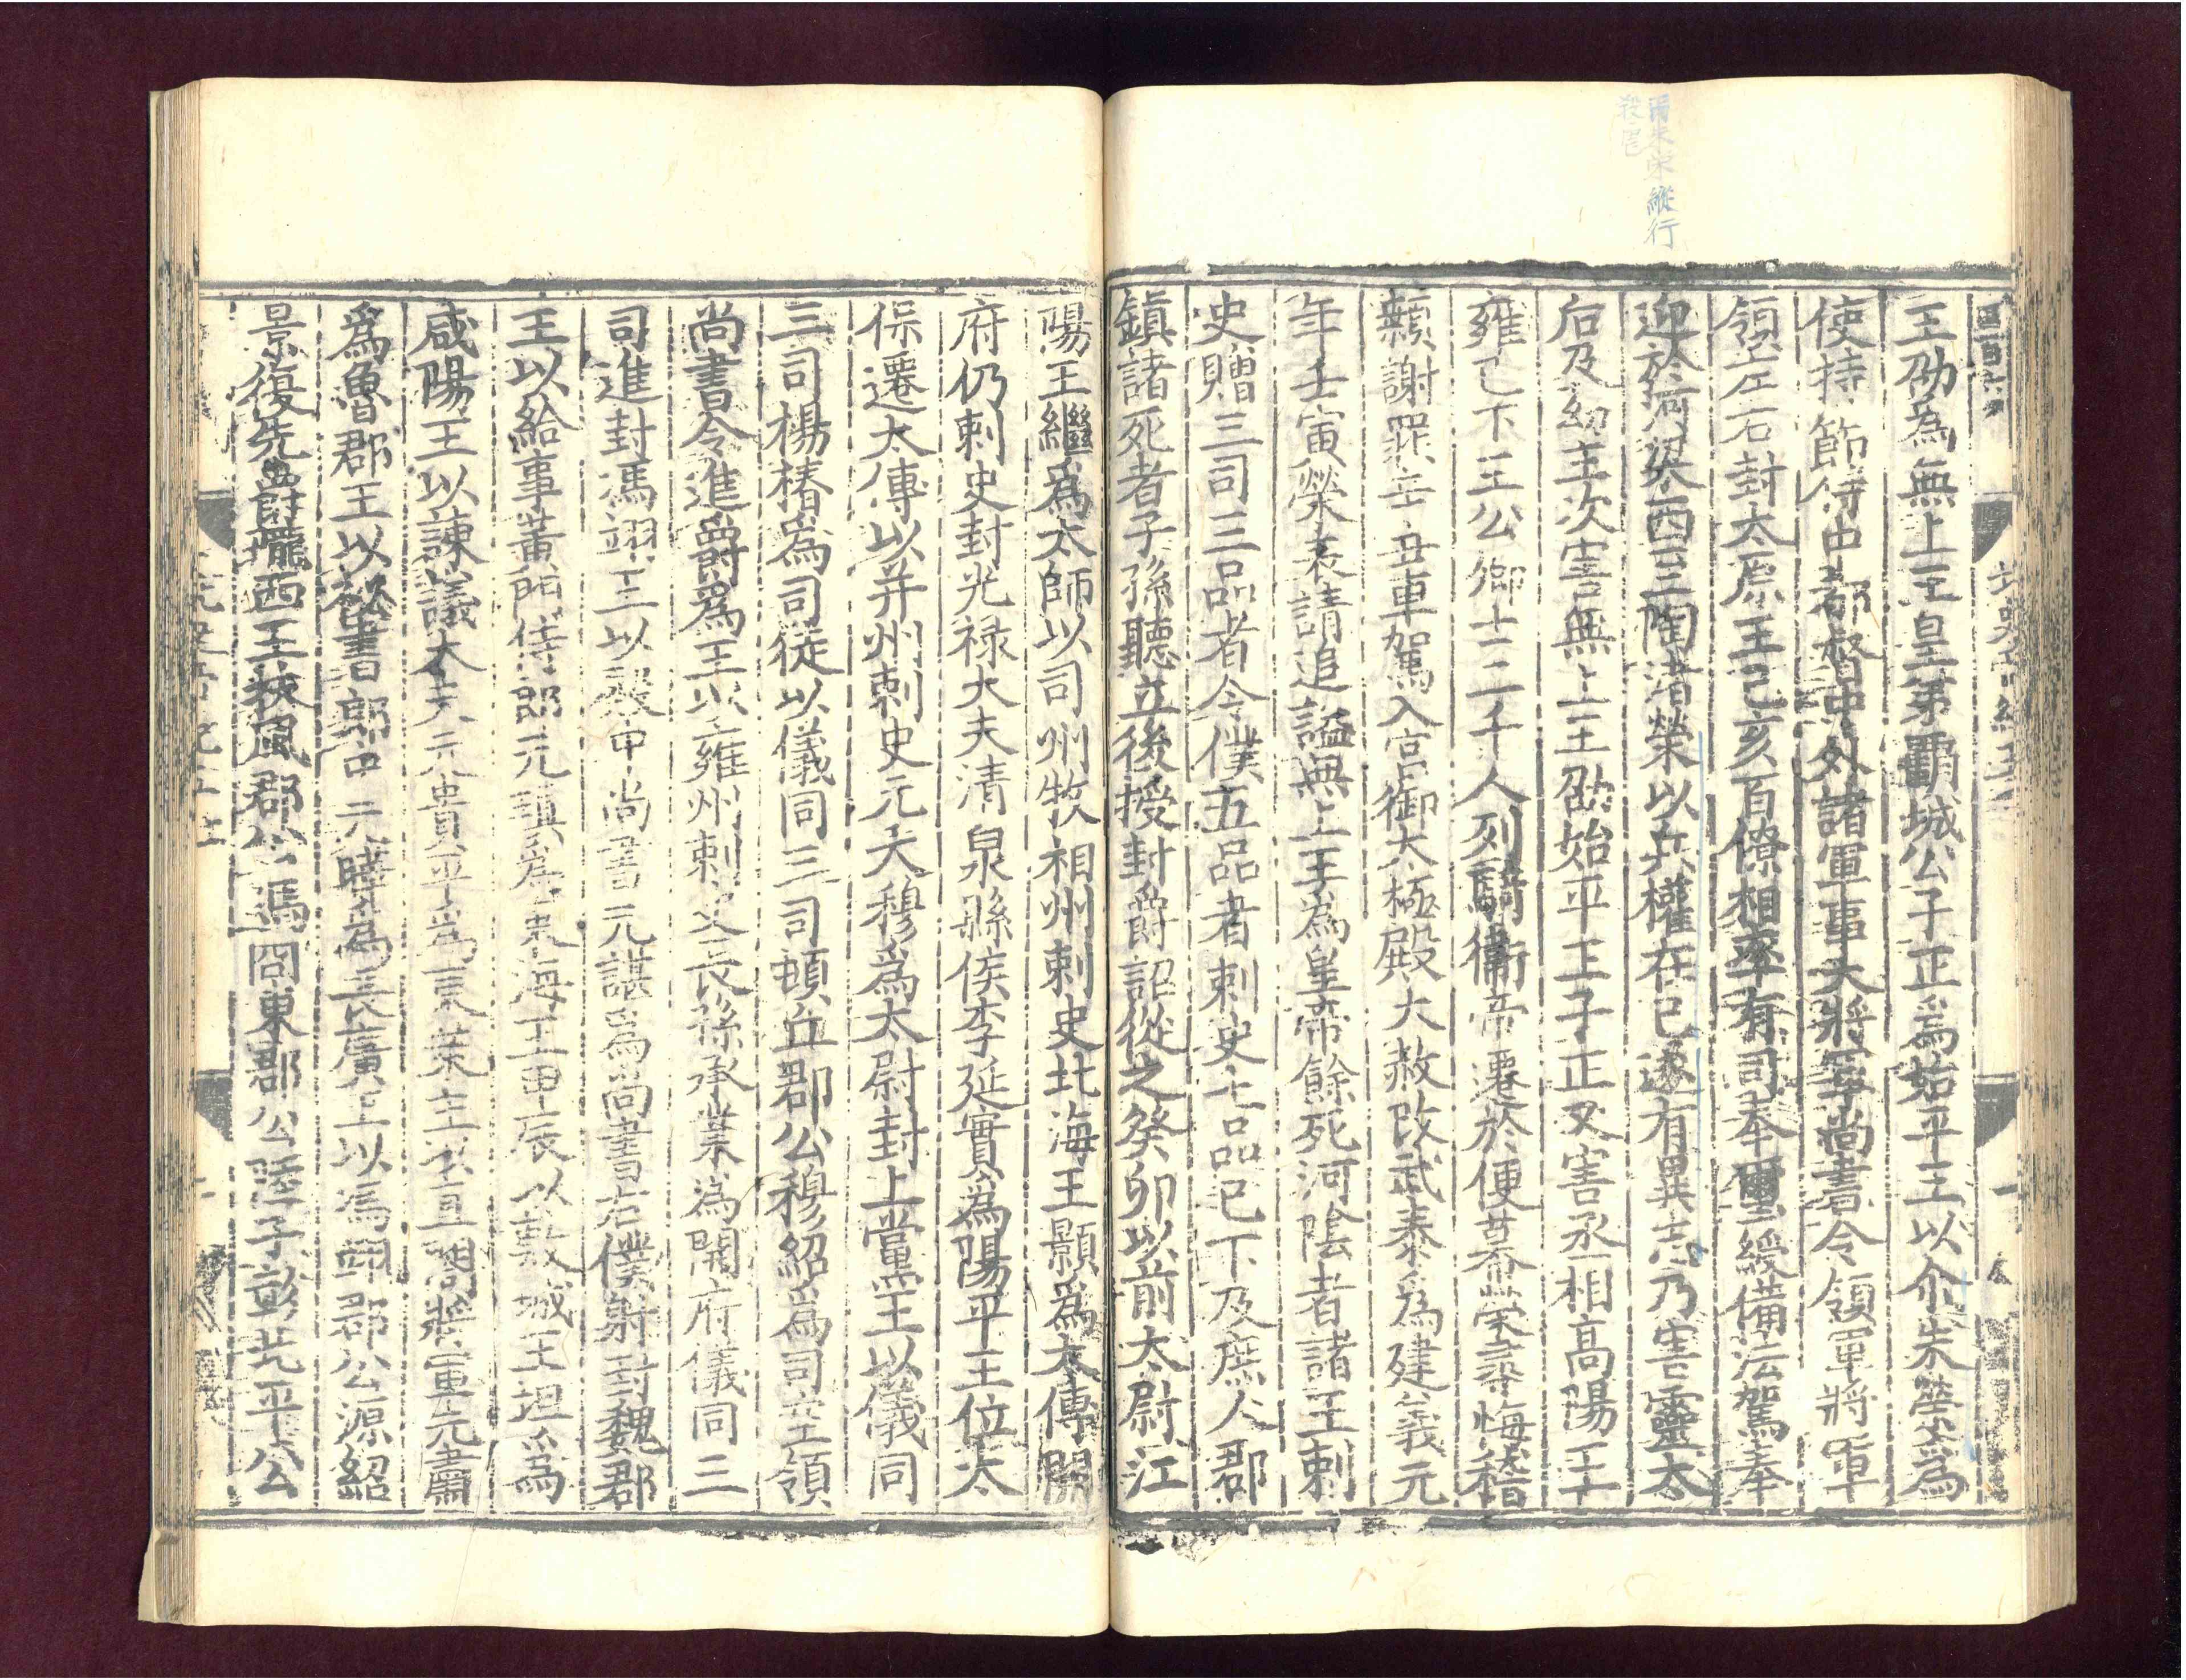 尒朱榮縱行
殺害
王劭為無上王皇弟霸城公子正爲始平王以尒朱榮爲
使持節侍中都督中外諸軍事大將軍尚書令領軍將軍
領左右封太原王己亥百僚相率有司奉璽綬備法駕奉
迎於河梁西至陶渚榮以兵權在己遂有異志乃害靈太
后及幼主次害無上王劭始平王子正又害丞相高陽王
雍已下王公卿士二千人列騎衛帝遷於便幕榮尋悔稽
顙謝罪辛丑車駕入宮御太極殿大赦改武泰爲建義元
年壬寅榮表請追謚無上王為皇帝餘死河陰者諸王刺
史贈三司三品者令僕五品者刺史七品已下及庶人郡
鎮諸死者子孫聽立後授封爵詔從之癸卯以前太尉江
陽王繼爲太師以司州牧相州刺史北海王顥爲太傅開
府仍刺史封光禄大夫清泉縣侯李延寔為陽平王位太
保遷太傅以并州刺史元天穆爲太尉封上黨王以儀同
三司楊椿爲司徒以儀同三司頓丘郡公穆紹爲司空領
尚書令進爵爲王以雍州刺史長孫承業為開府儀同三
司進封馮翊王以殿中尚書元諶爲尚書右僕射封魏郡
王以給事黃門侍郎元瑱爲東海王甲辰以敷城王坦爲
咸陽王以諫議大夫元貴平爲東萊王以直閤將軍元肅
爲魯郡王以祕書郎中元曄爲長廣王以馮翊郡公源紹
景復先爵隴西王扶風郡公馮冏東郡公陸子彰北平公